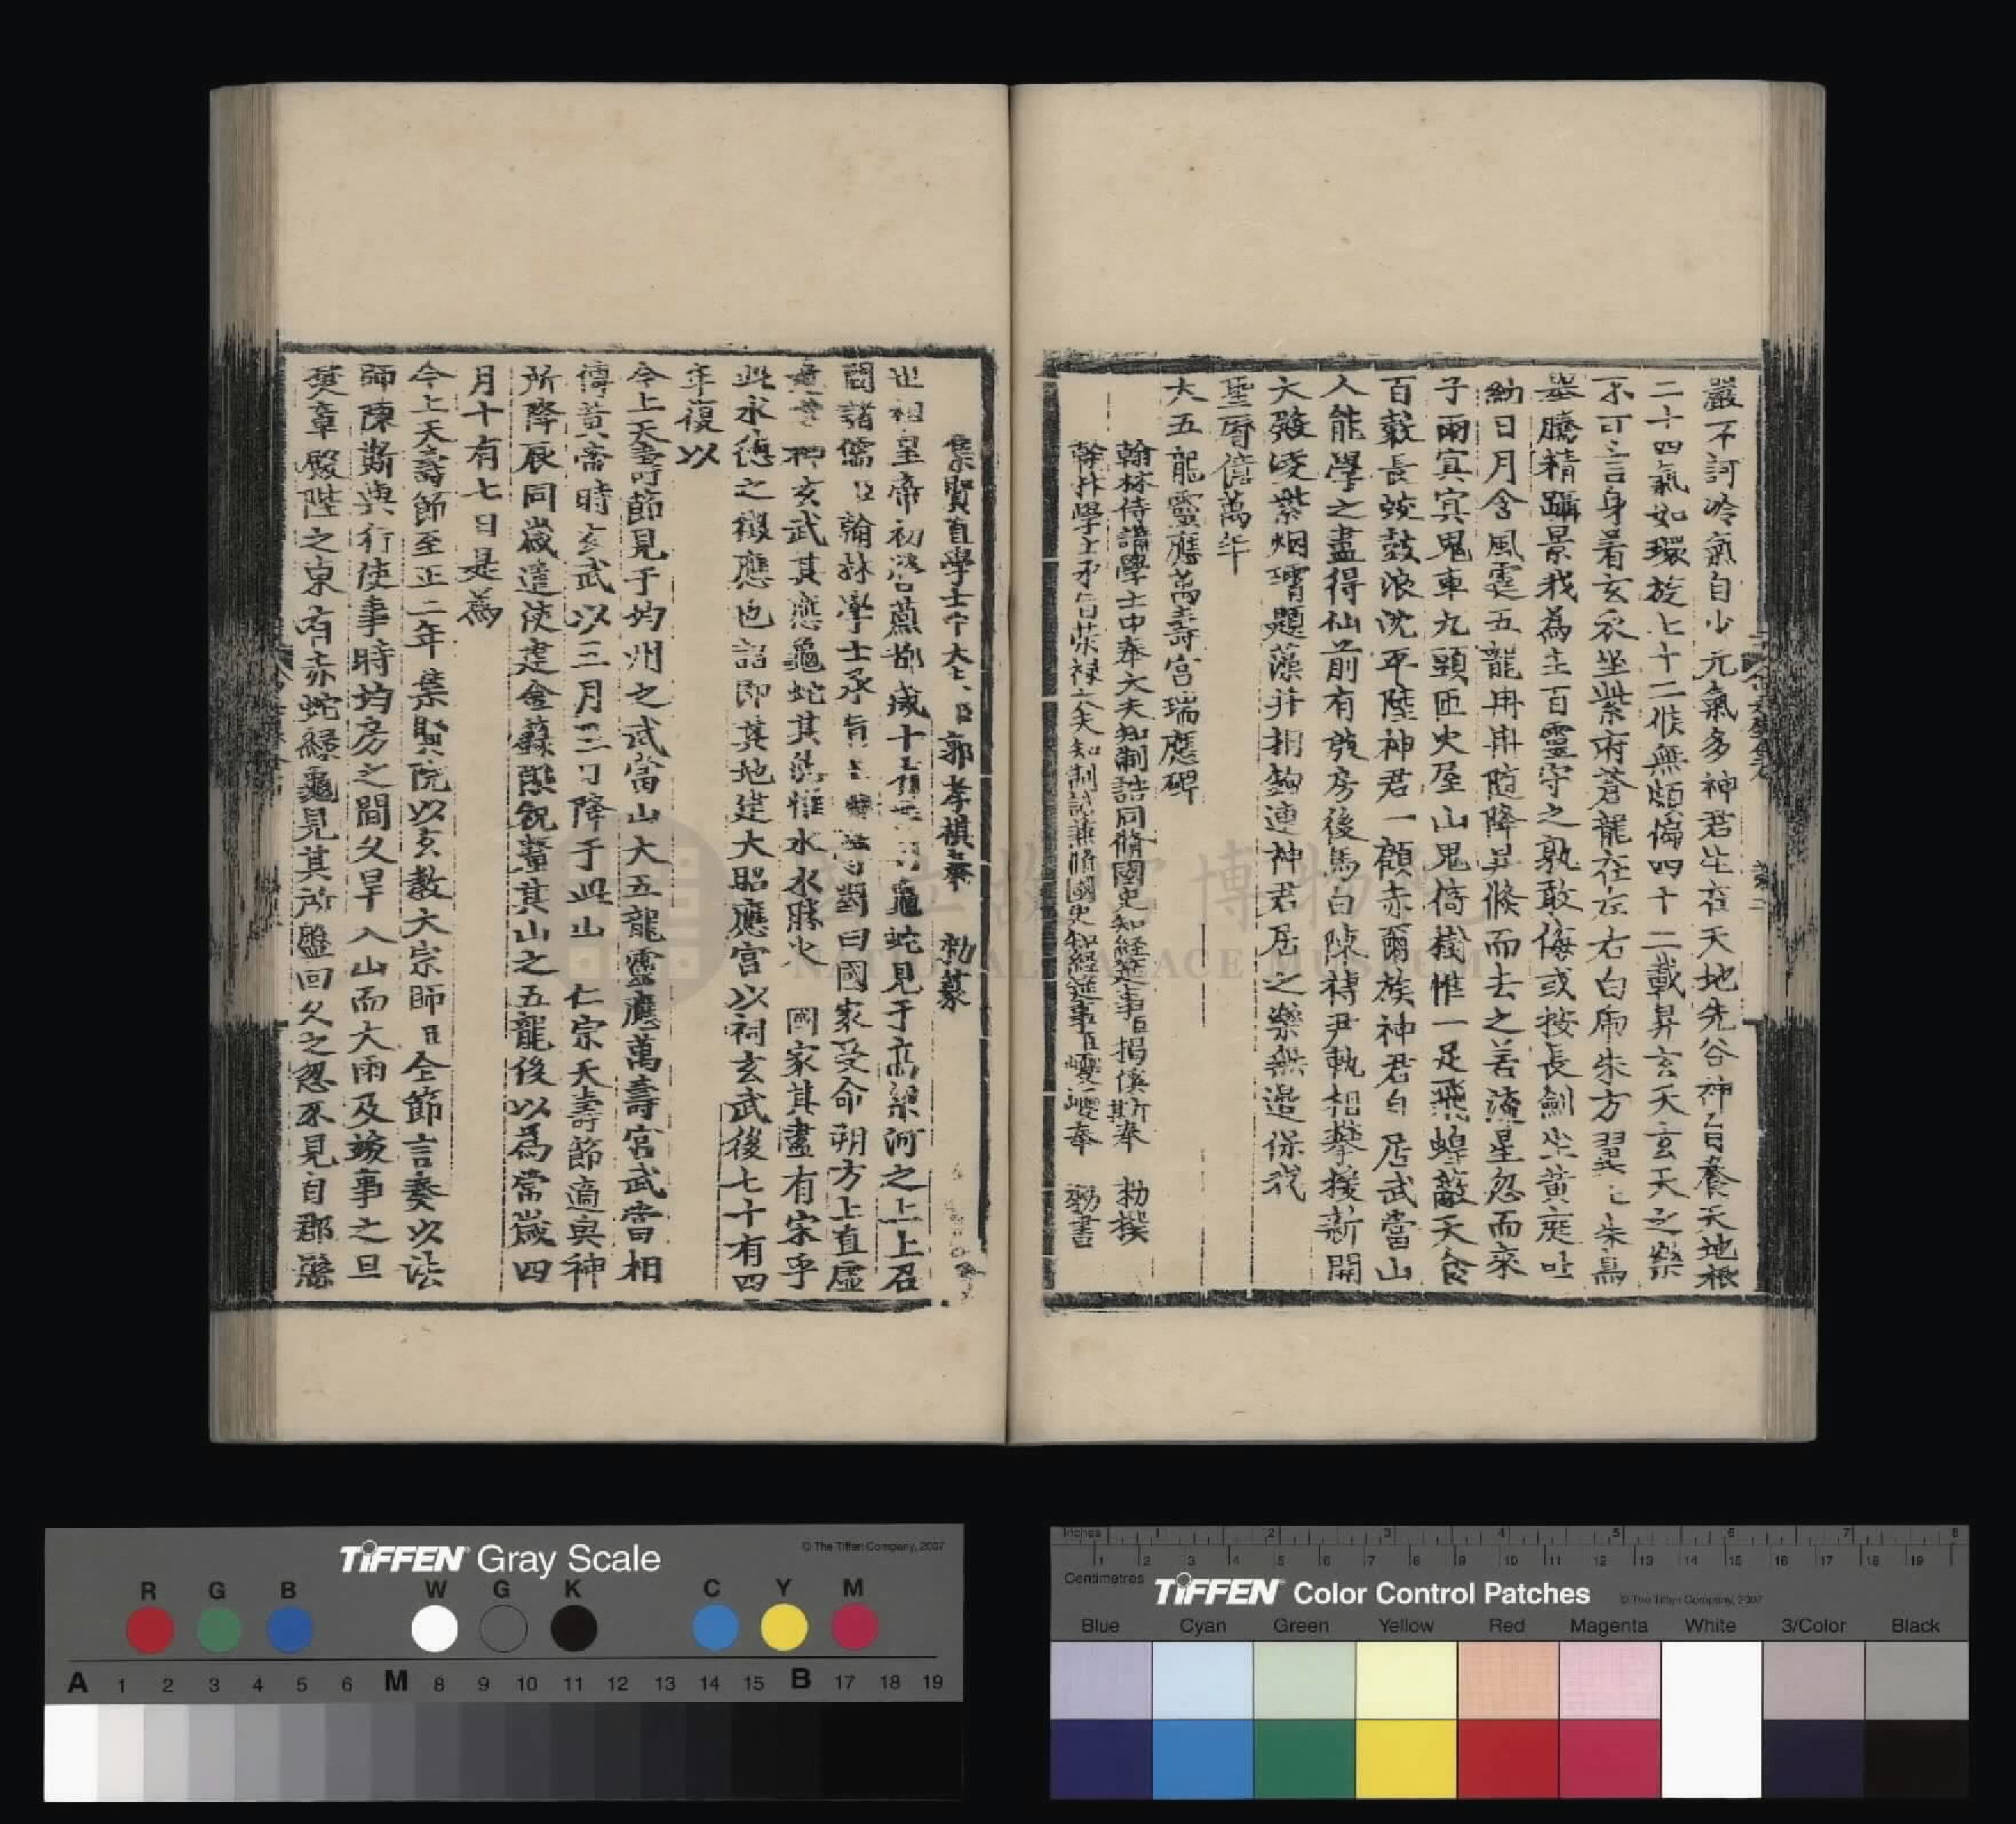 嚴不訶冷氣自少元氣多神君生在天地先谷神以自養天地根
二十四氣如環旋七十二候無頗偏四十二載昇玄天玄天之樂
不可言身着玄衣坐紫府蒼龍在左右白虎朱方翼七朱鳥
騰精躡景我為主百靈守之孰敢侮或按長劍坐黃庭吐
納日月含風霆五龍冉冉隨降昇倏而去之若流星忽而來
子雨冥冥鬼車九頭匝火屋山鬼倚樹惟一足飛蝗蔽天食
百穀長蛟鼓浪沈平陸神君一顧赤爾族神君自居武當山
人能學之盡得仙前有張房後馬白陳 尹執相攀援新開
大殿凌紫烟 題藻井相鉤連神君居之樂無邊保我
聖曆億萬年
大五龍靈應萬壽宮瑞應碑
翰林侍講學士中奉大夫知制誥同脩國史知經筵事臣揭傒斯奉 勑撰
翰林學士承旨榮祿大夫知制誥兼脩國史知經筵事臣巙巙奉 勑書
集賢直學士中大夫臣郭孝基奉 勑篆
世祖皇帝初營燕都歲十有二月龜蛇見于高梁河之上上召
問諸儒臣翰林學士承旨 對曰國家受命朔方上直虛
神玄武其應龜蛇其 惟水水勝火 國家其盡有宋乎
此水德之徵應也詔即其地建大昭應宮以祠玄武後七十有四
年復以
今上天壽節見于均州之武當山大五龍靈應萬壽宮武當相
傳黃帝時玄武以三月三日降于此山 仁宗天壽節適與神
所降辰同歲遣使建金籙醮祝釐其山之五龍後以為常歲四
月十有七日是為
今上天壽節至正二年集賢院以玄教大宗師臣全節言奏以法
師陳 與行使事時均房之間久旱入山而大雨及竣事之旦
 章殿陛之東有赤蛇綠龜見其所盤回久之忽不見自郡
國立故宮博物院
NATIONAL PALACE MUSEUM
TIFFEN Gray Scale
© The Tiffen Company, 2007
R G B W G K C Y M
A 1 2 3 4 5 6 M 8 9 10 11 12 13 14 15 B 17 18 19
Inches 1 2 3 4 5 6 7 8
1 2 3 4 5 6 7 8 9 10 11 12 13 14 15 16 17 18 19
Centimetres
TIFFEN Color Control Patches
© The Tiffen Company, 2007
Blue Cyan Green Yellow Red Magenta White 3/Color Black